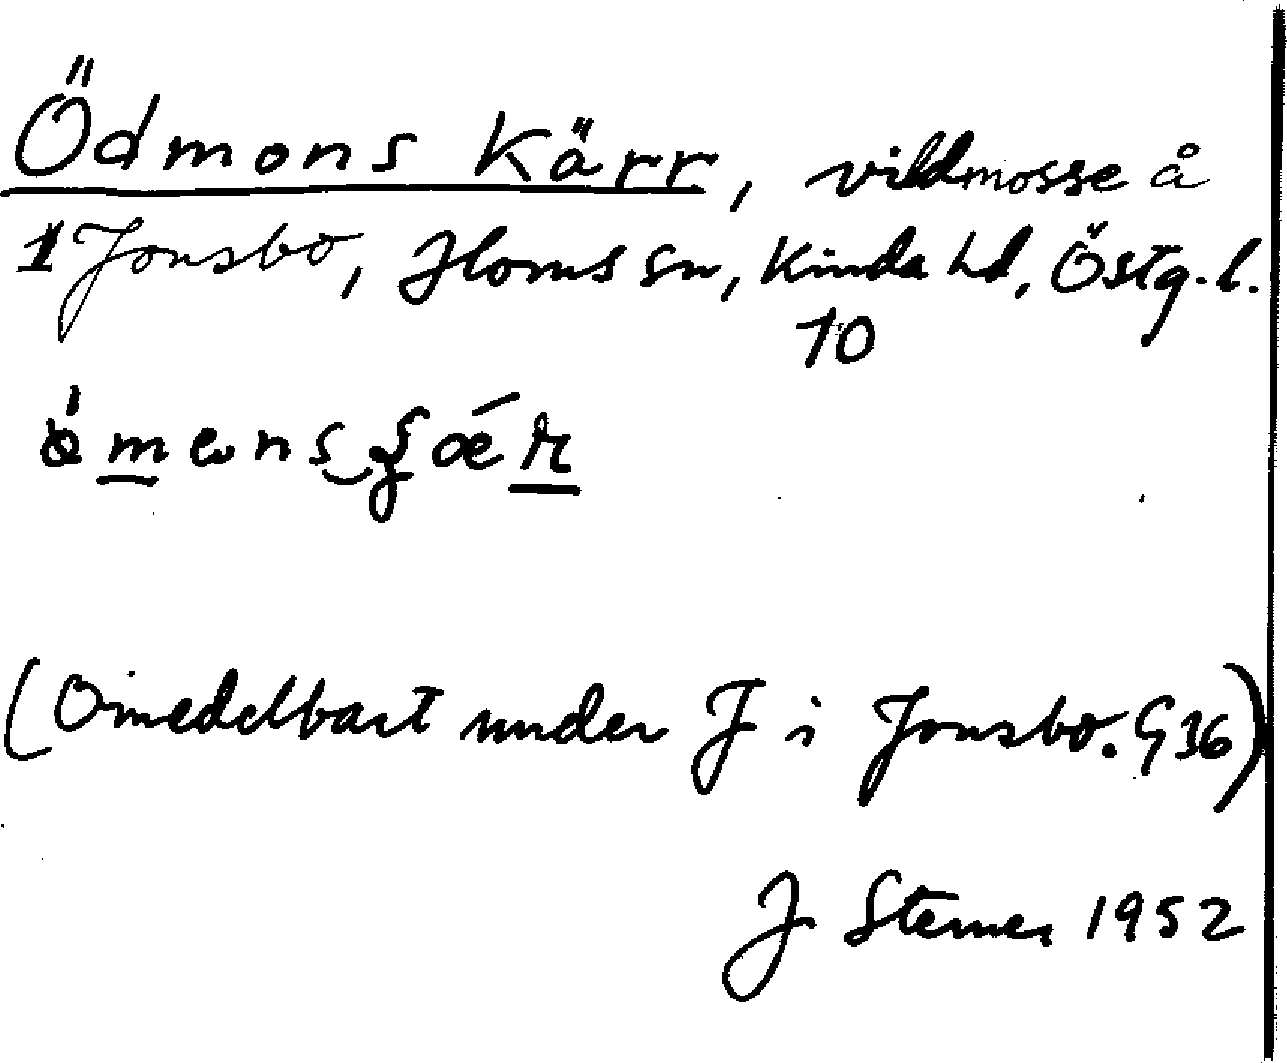 Ödmons Kärr, vildmosse å
1 Jonsbo, Horns sn, Kinda hd, Östg. l.
10
(Omedelbart under J i Jonsbo. G 36)
J Sterner 1952